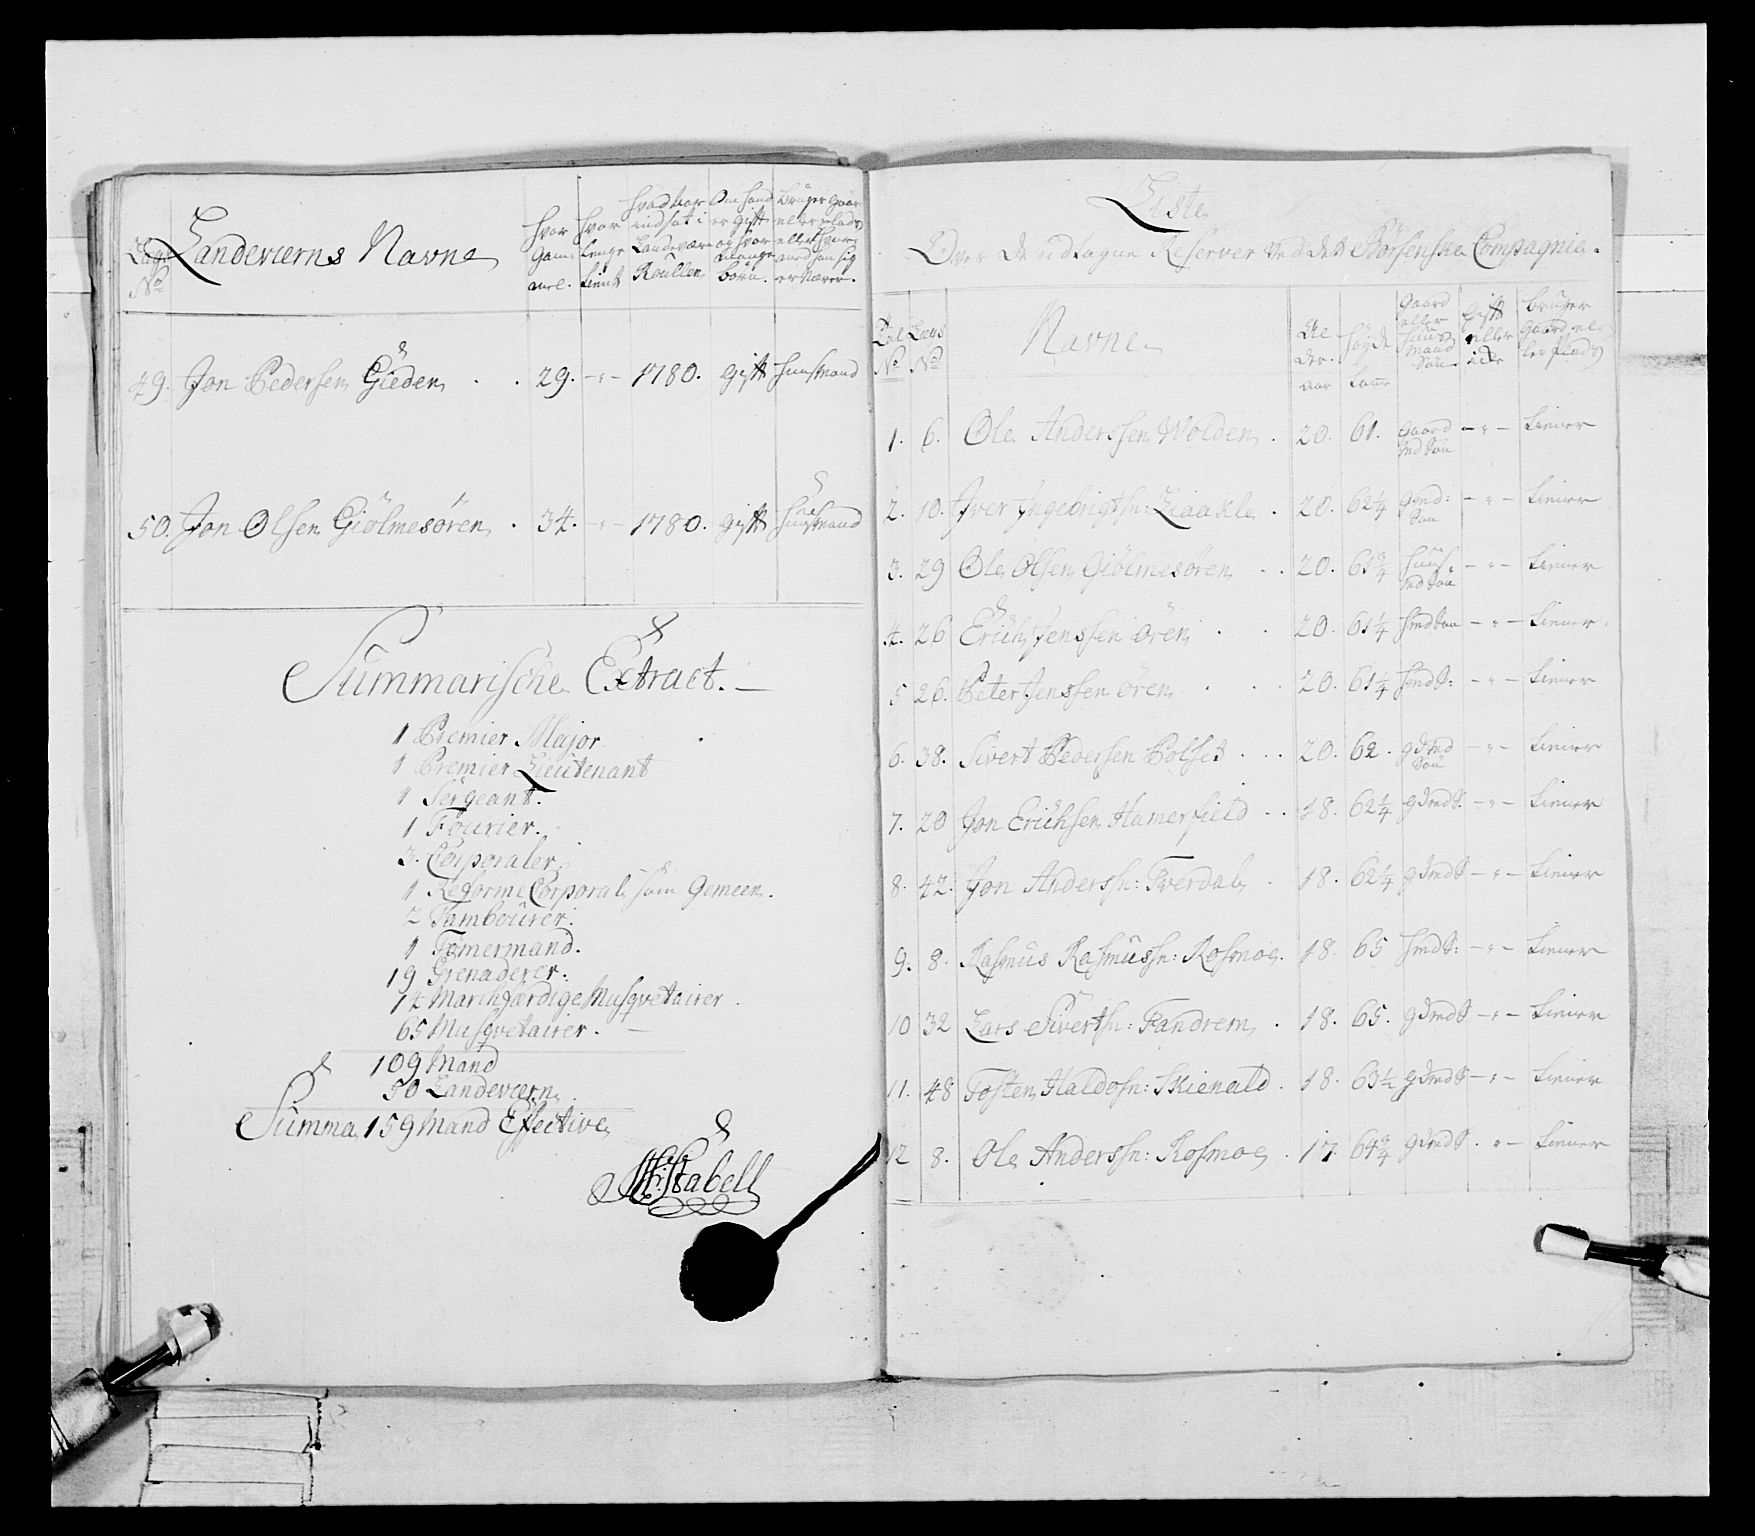 Lægs No
Landeværns Navne
hvor Gammel.
hvor lenge tient
hvad Aar indsat i Landeværns Roullen
Om hand er gift og hvor mange børn.
bruger Gaard eller plads eller hvormed han sig ernærer.
49. Jon Pedersen Gieden . . 29. -"- 1780. gift huusmand
50. Jon Olsen Giølmesøren . 34. -"- 1780. gift huusmand
Summarische Extract.
1 Premier Major
1 Premier Lieutenant
1 Sergeant.
1 Fourier.
3. Corporaler
1 Reforme Corporal som Gemeen.
2 Tambourer.
1 Tømermand.
19 Grenaderer.
14 Marchfærdige Musqvetairer.
65 Musqvetairer.
109 Mand
50 Landeværn
Summa 159 Mand Effective
Stabell
Liste
Over De indtagne Reserver ved det Børsenske Compagnie.
Tal No
Lægs No
Navne
Alder. aar
høyde tomme
Gaard eller huusmand Søn
Gift eller icke
bruger Gaard eller plads
1. 6. Ole Anderssen Wolden . 20. 61. Gaardmd Søn -"- tiener
2. 10. Iver Ingebrigtsn: Liaakle . 20. 62 1/4 Gmd: Søn -"- tiener
3. 29 Ole Olsen Giølmesøren . . 20. 61 3/4 huusmd Søn -"- tiener
4. 26 Erich Jenssen ören . . 20. 61 1/4 hmd Søn -"- tiener
5 26. Peter Jenssen ören . . . 20. 61 1/4 hmd S: -"- tiener
6. 38. Sivert Pedersen Bolset . . . 20. 62. gdmd Søn -"- tiener
7. 20 Jon Erichsen Hamerfield . . 18. 62 1/4 gdmd S. -"- tiener
8. 42. Jon Anderssn: Tverdal . 18. 62 1/4 gdmd S -"- tiener
9. 8. Rasmus Rasmussn: Rosmoe. 18. 65 hmd S: -"- tiener
10 32 Lars Sivertsn: Fandrem . 18. 65. gdmd S -"- tiener
11. 48 Tosten Haldosn: Skienald . 18. 63 1/2 gdmd S -"- tiener
12 8. Ole Anderssn: Rosmoe . 17. 64 3/4 gdmd S. "- tiener